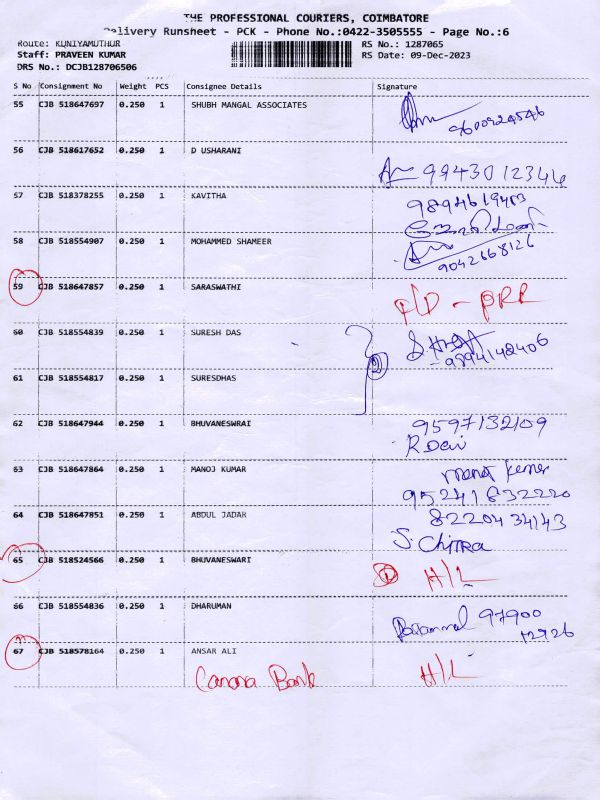 THE PROFESSIONAL COURIERS, COIMBATORE
Delivery Runsheet - PCK - Phone No.:0422-3505555 - Page No.:6
Route: KUNIYAMUTHUR RS No.: 1287065
Staff: PRAVEEN KUMAR RS Date: 09-Dec-2023
DRS No.: DCJB128706506
S No Consignment No Weight PCS Consignee Details Signature
55 CJB 518647697 0.250 1 SHUBH MANGAL ASSOCIATES
9600924546
56 CJB 518617652 0.250 1 D USHARANI
9943012346
57 CJB 518378255 0.250 1 KAVITHA
9894619453
58 CJB 518554907 0.250 1 MOHAMMED SHAMEER
9042668126
59 CJB 518647857 0.250 1 SARASWATHI
60 CJB 518554839 0.250 1 SURESH DAS
9894148406
2
61 CJB 518554817 0.250 1 SURESDHAS
62 CJB 518647944 0.250 1 BHUVANESWRAI
9597132109
R.Devi
63 CJB 518647864 0.250 1 MANOJ KUMAR
95241832220
64 CJB 518647851 0.250 1 ABDUL JADAR
8220434143
S.CHITRA
65 CJB 518524566 0.250 1 BHUVANESWARI
1 H/L
66 CJB 518554836 0.250 1 DHARUMAN
97900
12926
67 CJB 518578164 0.250 1 ANSAR ALI
Canara Bank H/L